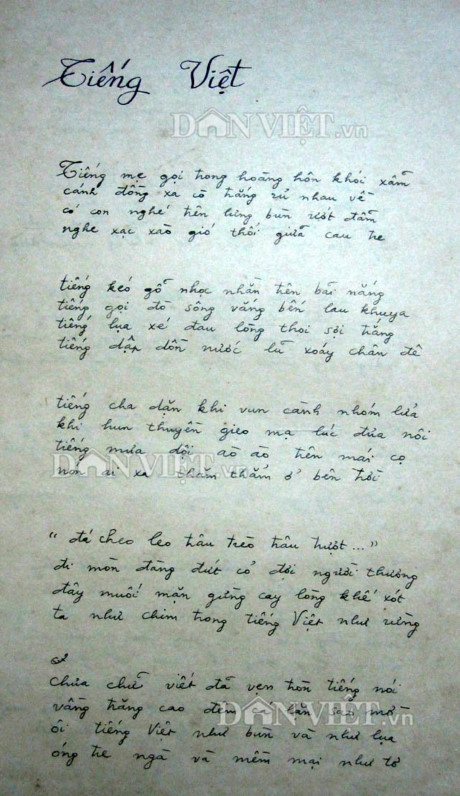 Tiếng Việt
DÂN VIỆT.vn
Tiếng mẹ gọi trong hoàng hôn khói xẫm
cánh đồng xa cò trắng rủ nhau về
có con nghé trên lưng bùn ướt đẫm
nghe xạc xào gió thổi giữa cau tre
tiếng kéo gỗ nhọc nhằn trên bãi nắng
tiếng gọi đò sông vắng bến lau khuya
tiếng lụa xé đau lòng thoi sợi trắng
tiếng dập dồn nước lũ xoáy chân đê
tiếng cha dặn khi vun cành nhóm lửa
khi hun thuyền gieo mạ lúc đưa nôi
tiếng mưa dội ào ào trên mái cọ
DÂN VIỆT.vn
nón ai xa thăm thẳm ở bên trời
"đá cheo leo trâu trèo trâu trượt..."
đi mòn đàng đứt cỏ đợi người thương
đây muối mặn gừng cay lòng khế xót
ta như chim trong tiếng Việt như rừng
chưa chữ viết đã vẹn tròn tiếng nói
vầng trăng cao đêm
DÂN VIỆT.vn
ôi tiếng Việt như bùn và như lụa
óng tre ngà và mềm mại như tơ